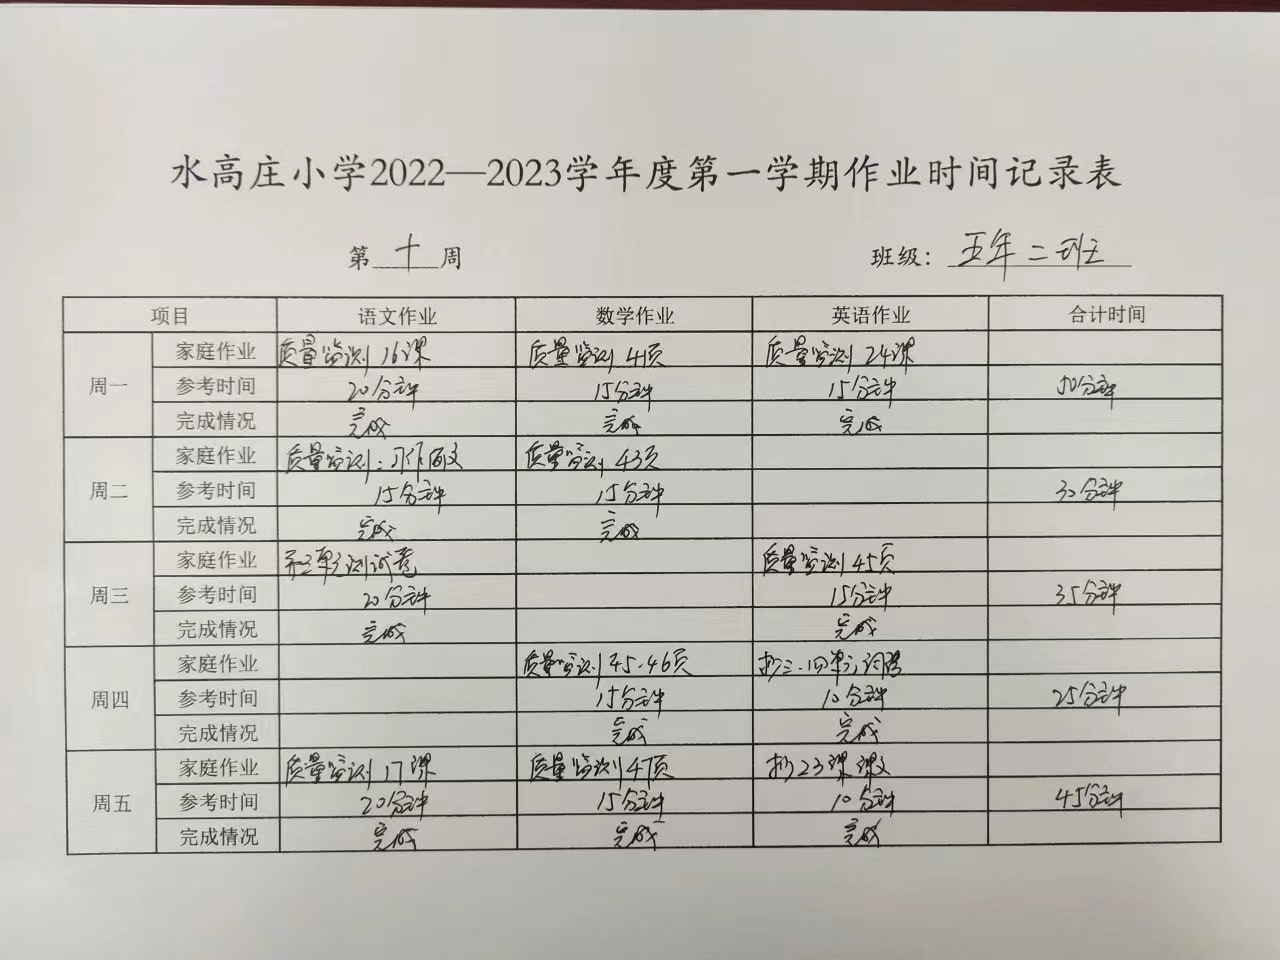 水高庄小学2022—2023学年度第一学期作业时间记录表
第 十 周 班级：五年二班
项目 语文作业 数学作业 英语作业 合计时间
周一 家庭作业 质量监测16课 质量监测41页 质量监测24课
参考时间 20分钟 15分钟 15分钟 50分钟
完成情况 完成 完成 完成
周二 家庭作业 质量监测：习作 质量监测43页
参考时间 15分钟 15分钟 30分钟
完成情况 完成 完成
周三 家庭作业 单元测试卷 质量监测45页
参考时间 20分钟 15分钟 35分钟
完成情况 完成 完成
周四 家庭作业 质量监测45.46页 抄三.四单元词语
参考时间 15分钟 10分钟 25分钟
完成情况 完成 完成
周五 家庭作业 质量监测17课 质量监测47页 抄23课课文
参考时间 20分钟 15分钟 10分钟 45分钟
完成情况 完成 完成 完成